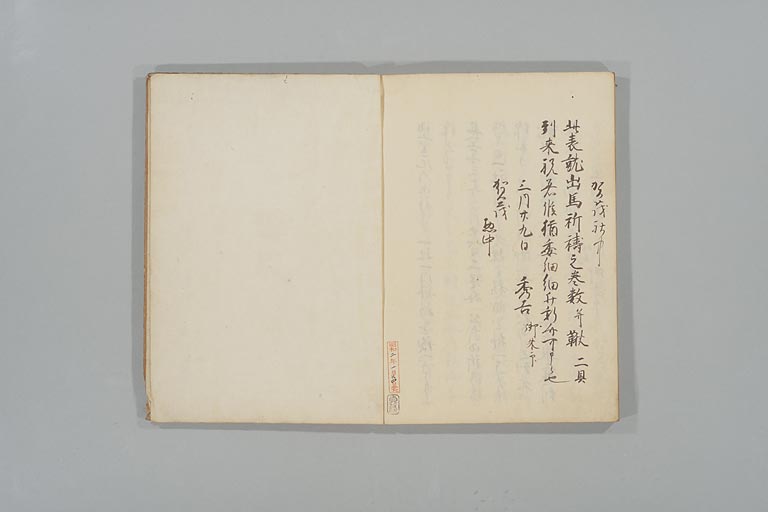 賀茂社中
此表就出馬祈祷之巻数并鞦 二具
到来祝着候猶委細細井新介可申候也
三月廿九日 秀吉 御朱印
賀茂
惣中